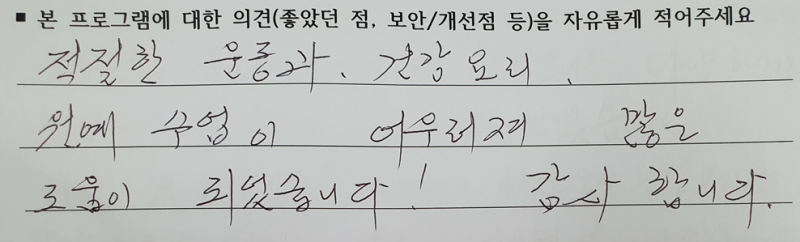 ■ 본 프로그램에 대한 의견(좋았던 점, 보안/개선점 등)을 자유롭게 적어주세요
적절한 운동과, 건강 요리,
원예 수업이 어우러져 많은
도움이 되었습니다! 감사합니다.